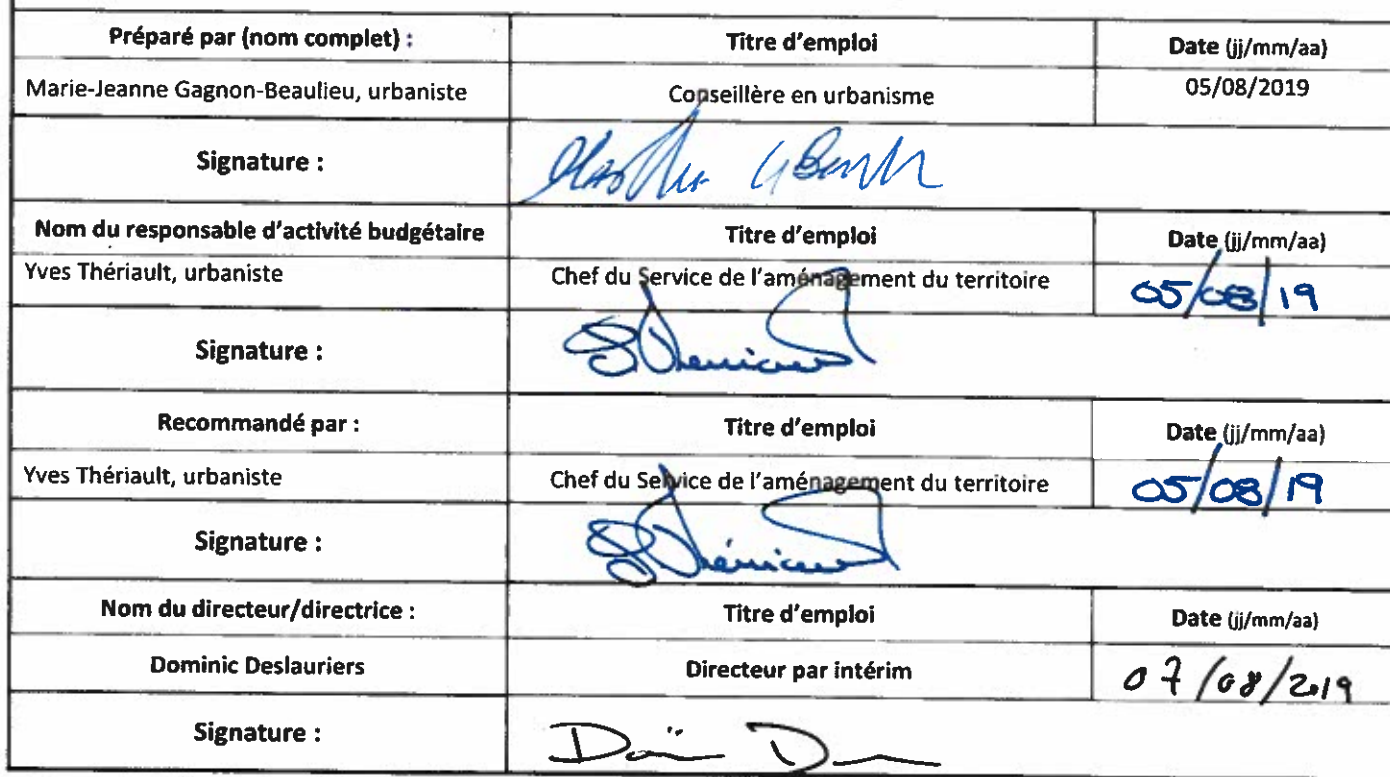 Préparé par (nom complet) : Titre d'emploi Date (jj/mm/aa)
Marie-Jeanne Gagnon-Beaulieu, urbaniste Conseillère en urbanisme 05/08/2019
Signature :
Nom du responsable d'activité budgétaire Titre d'emploi Date (jj/mm/aa)
Yves Thériault, urbaniste Chef du Service de l'aménagement du territoire 05/08/19
Signature :
Recommandé par : Titre d'emploi Date (jj/mm/aa)
Yves Thériault, urbaniste Chef du Service de l'aménagement du territoire 05/08/19
Signature :
Nom du directeur/directrice : Titre d'emploi Date (jj/mm/aa)
Dominic Deslauriers Directeur par intérim 07/08/2019
Signature :